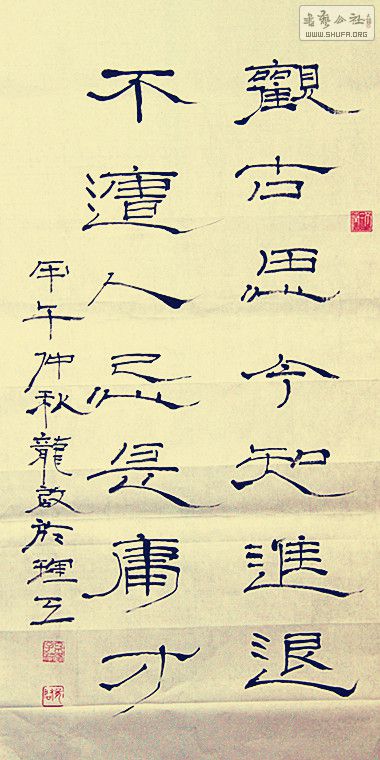 書藝公社
WWW.SHUFA.ORG
觀古思今知進退
不遭人忌是庸才
甲午仲秋龍於理工